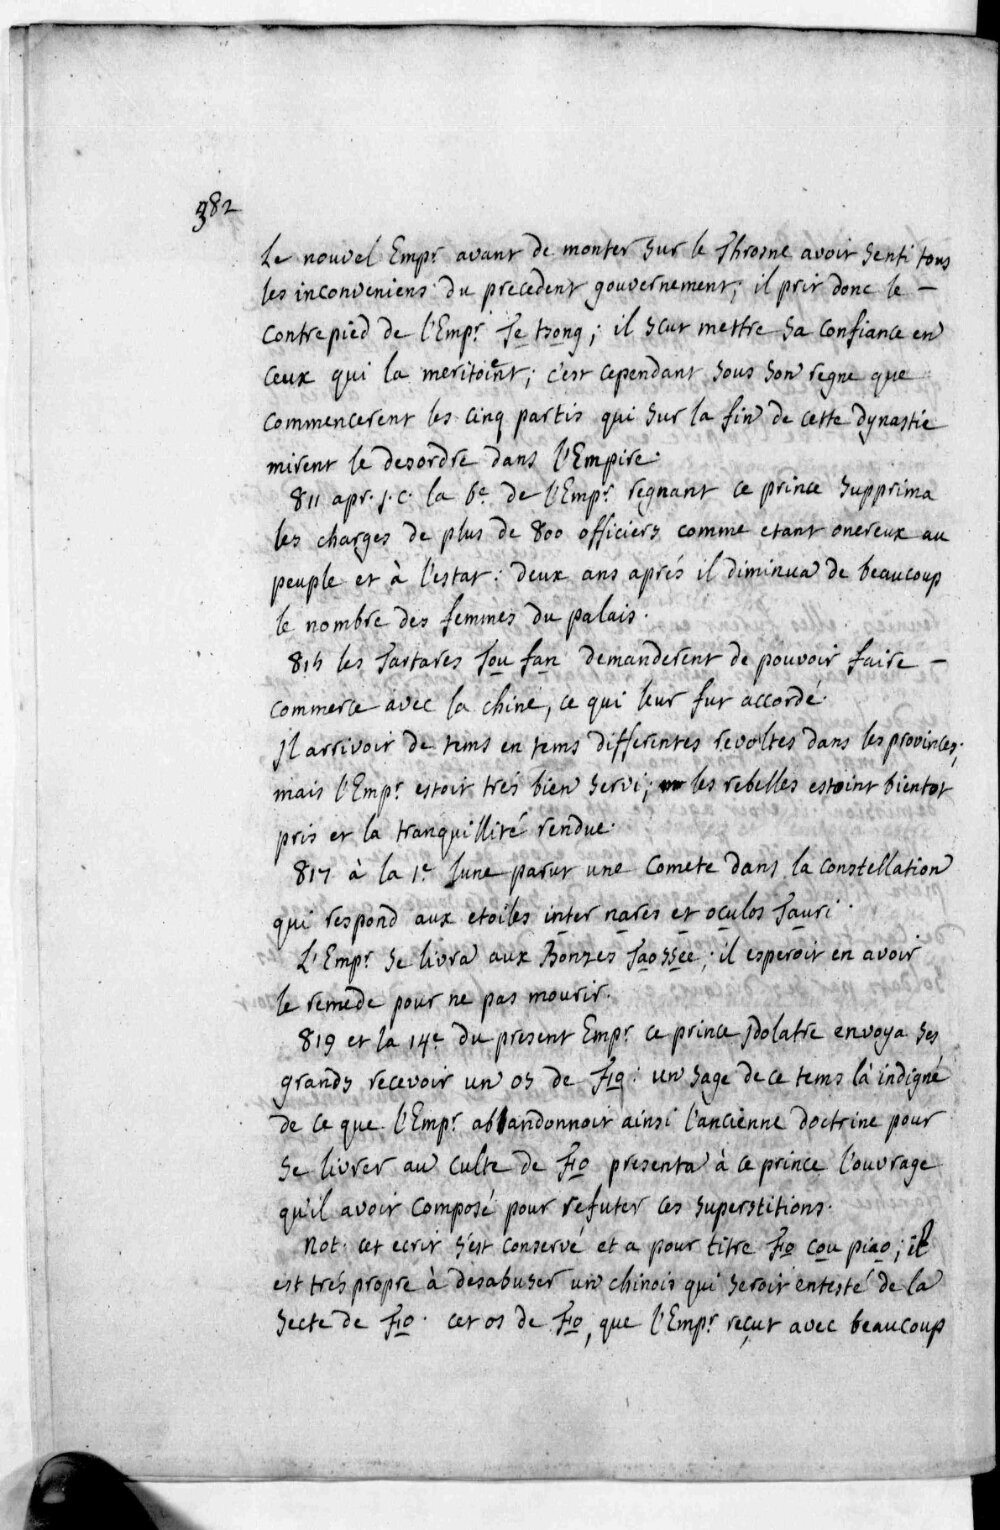 382
Le nouvel Empr. avant de monter sur le Throsne avoit senti tous
les inconveniens du precedent gouvernement; il prit donc le –
contrepied de l'Empr. Te tsong; il scut mettre sa confiance en
ceux qui la meritoient; c'est cependant sous son regne que
commencerent les cinq partis qui sur la fin de cette dynastie
mirent le desordre dans l'Empire.
811 apr. J.C. la 6e de l'Empr. regnant ce prince supprima
les charges de plus de 800 officiers comme etant onereux au
peuple et à l'estat: deux ans aprés il diminua de beaucoup
le nombre des femmes du palais.
815 les Tartares Tou fan demanderent de pouvoir faire –
commerce avec la chine, ce qui leur fut accordé.
Jl arrivoit de tems en tems differentes revoltes dans les provinces;
mais l'Empr. estoit trés bien servi; les rebelles estoint bientot
pris et la tranquillité rendue.
817 à la 1e lune parut une comete dans la constellation
qui respond aux etoiles inter nares et oculos Tauri.
L'Empr. se livra aux Bonzes Taossee; il esperoit en avoir
le remede pour ne pas mourir.
819 et la 14e du present Empr. ce prince Jdolatre envoya ses
grands recevoir un os de Fo: un sage de ce tems là indigné
de ce que l'Empr. abandonnoit ainsi l'ancienne doctrine pour
se livrer au culte de Fo presenta à ce prince l'ouvrage
qu'il avoit composé pour refuter ces superstitions.
Not. cet ecrit s'est conservé et a pour titre Fo cou piao; il
est trés propre à desabuser un chinois qui seroit entesté de la
secte de Fo. cet os de Fo, que l'Empr. reçut avec beaucoup